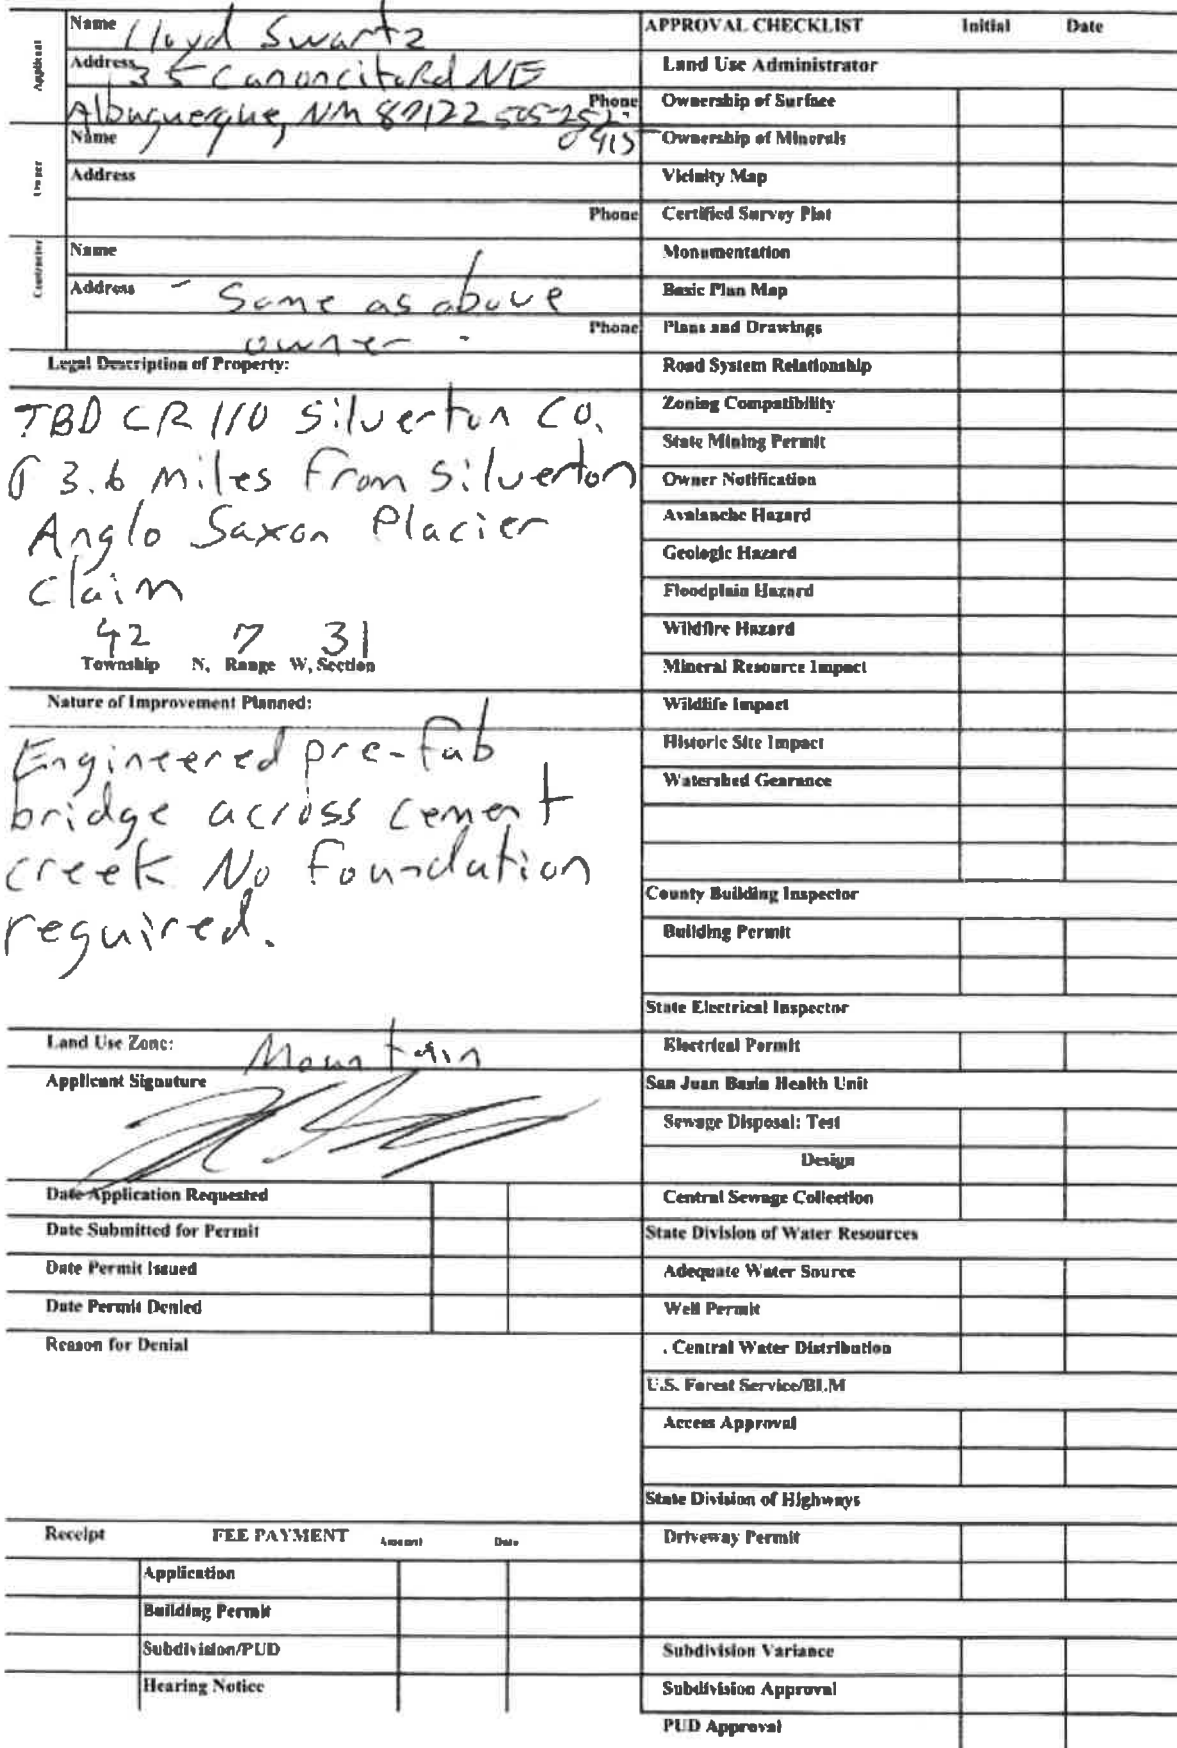 Applicant
Name Lloyd Swartz
Address 35 Canoncito Rd NE
Albuquerque, NM 87122 Phone 505-252-
0415
Owner
Name
Address
Phone
Contractor
Name
Address - Same as above
owner - Phone
Legal Description of Property:
TBD CR 110 Silverton CO.
3.6 Miles From Silverton
Anglo Saxon Placier
Claim
42 7 31
Township N, Range W, Section
Nature of Improvement Planned:
Engineered pre-fab
bridge across cement
creek No foundation
required.
Land Use Zone: Mountain
Applicant Signature
Date Application Requested
Date Submitted for Permit
Date Permit Issued
Date Permit Denied
Reason for Denial
Receipt FEE PAYMENT Amount Date
Application
Building Permit
Subdivision/PUD
Hearing Notice
APPROVAL CHECKLIST Initial Date
Land Use Administrator
Ownership of Surface
Ownership of Minerals
Vicinity Map
Certified Survey Plat
Monumentation
Basic Plan Map
Plans and Drawings
Road System Relationship
Zoning Compatibility
State Mining Permit
Owner Notification
Avalanche Hazard
Geologic Hazard
Floodplain Hazard
Wildfire Hazard
Mineral Resource Impact
Wildlife Impact
Historic Site Impact
Watershed Gearance
County Building Inspector
Building Permit
State Electrical Inspector
Electrical Permit
San Juan Basin Health Unit
Sewage Disposal: Test
Design
Central Sewage Collection
State Division of Water Resources
Adequate Water Source
Well Permit
. Central Water Distribution
U.S. Forest Service/BLM
Access Approval
State Division of Highways
Driveway Permit
Subdivision Variance
Subdivision Approval
PUD Approval